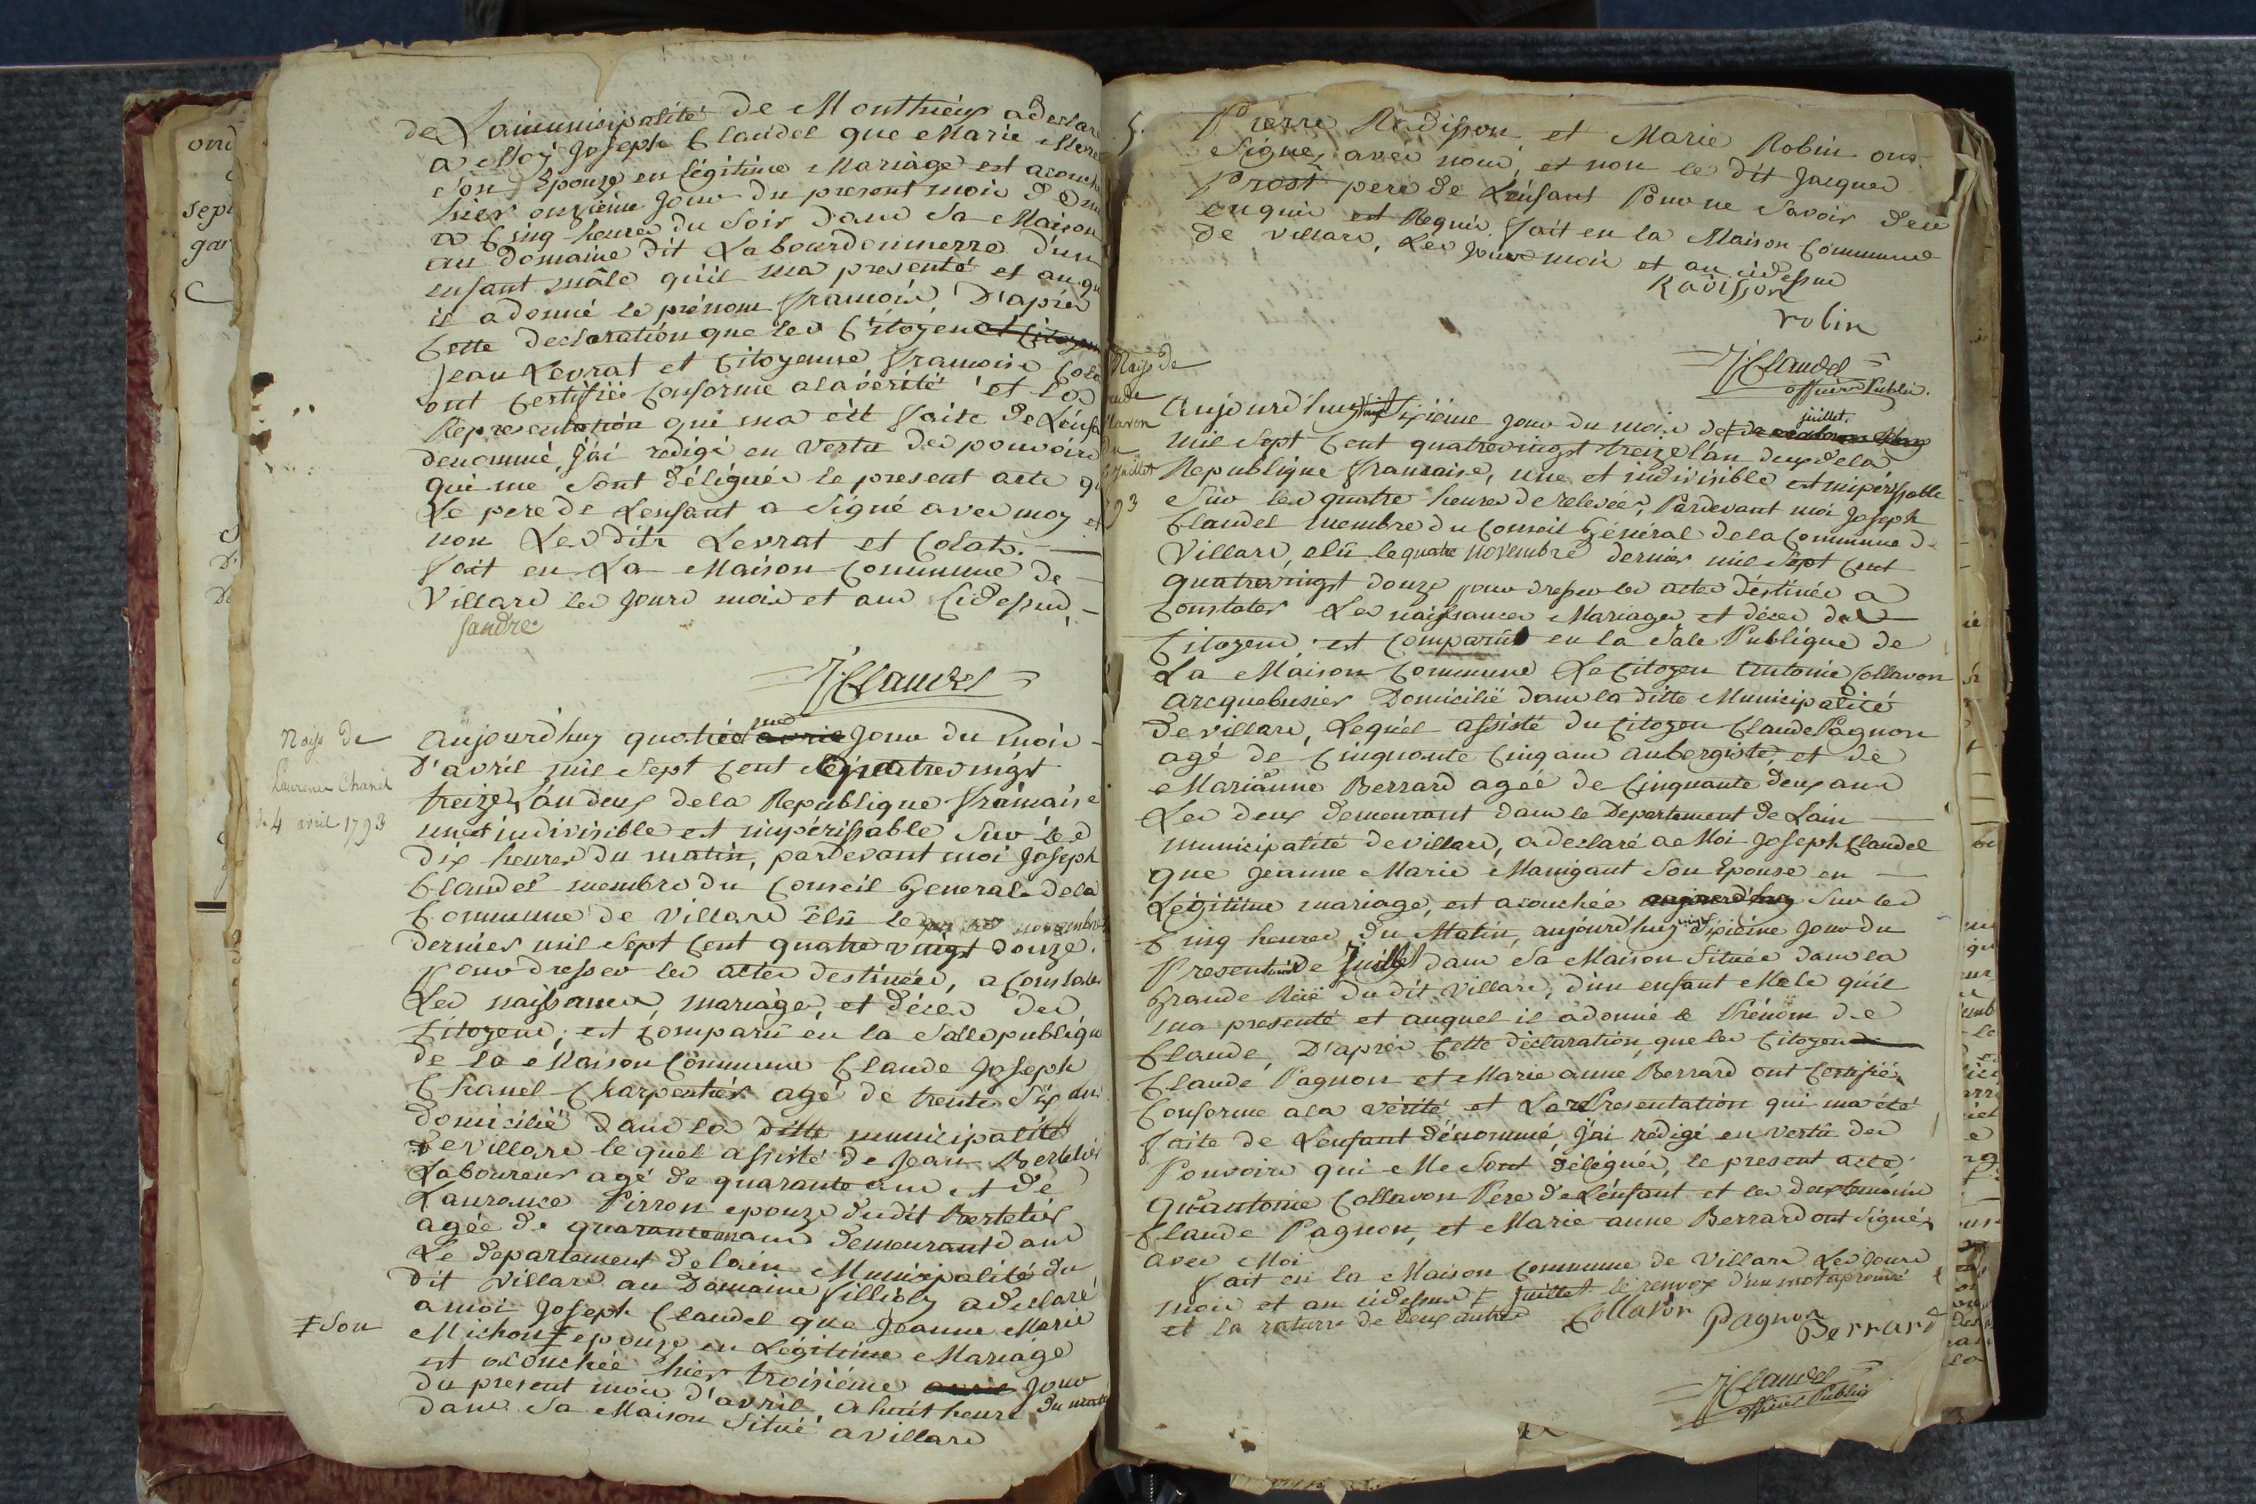 de La municipalité de Monthieux a declaré
a Moy Joseph Claudel que Marie
son Epouze en légitime Mariage est acouchée
hier onzieme Jour du present mois
a Cinq heures du Soir dans Sa Maison
au domaine dit Labourdonnerre d'un
enfant mâle qu'il ma presenté et auquel
il a donné le prénom françois D'après
Cette declaration que les Citoyens et Citoyens
Jean Levrat et Citoyenne françoise
ont Certifiée Conforme a la vérité et La
Representation qui ma été faite de L'enfant
denommé, J'ai redigé en vertu des pouvoirs
qui me Sont délégués le present acte que
Le pere de Lenfant a Signé avec moy et
non Les dits Levrat et Colat.
fait en La Maison Commune de
Villars les Jours mois et ans Cidessus
Sandre
J Claudel
Naiss de
Laurence Chanel
du 4 avril 1793
aujourd'huy quatrieme avril Jour du mois
d'avril mil Sept Cent quatrevingt
treize, l'an deux de la Republique francaise
une et indivisible est impérissable Sur les
dix heures du matin, pardevant moi Joseph
Claudel membre du Conseil General de la
Commune de Villars élû le novembre
dernier mil Sept Cent quatre vingt douze.
pour dresser les actes destinées, a Constater
Les naissances, mariages, et décès des
Citoyens; est comparû en la Salle publique
de la Maison Commune Claude Joseph
Chanel Charpentier agé de trente Six ans
domicilié dans la ditte municipalité
de Villars lequel assisté de Jean Bertelier
Laboureur agé de quarante ans et de
Laurance Pirron epouze du dit Bertelier
agée de quarante ans demeurant dans
Le departement de lain Municipalité du
dit Villars au Domaine Villioly a declaré
a moi Joseph Claudel que Jeanne Marie
Michon ‡ epouze en Légitime Mariage
‡ Son
est acouchée hier troisiéme avril Jour
du present mois d'avril a huit heure du matin
dans Sa Maison Situé a villars
5.
Pierre Radisson et Marie Robin ont
Signez avec nous, et non le dit Jacques
Prost pere de L'enfant Pour ne Savoir de ce
enquis est Requis. fait en la Maison Commune
de Villars, Les Jours mois et an cidessus
Radisson
robin
J Claudel
officier Public.
Naiss de
aude
llavon
du
juillet
93
Aujourd'huy vingt Sixiéme Jour du mois de juillet
mil Sept Cent quatrevingt treize l'an deux de la
Republique francaise, une et indivisible est impérissable
Sur les quatre heures de relevée, Pardevant moi Joseph
Claudel membre du Conseil Général de la Commune de
Villars, elû le quatre novembre dernier mil Sept Cent
quatrevingt douze pour dresser les actes déstinées a
Constater Les naissances Mariages et décès des
Citoyens; est Comparu en la Sale Publique de
La Maison Commune Le Citoyen antoine Collavon
arcquebusier Domicilié dans la ditte Municipalité
de villars, Lequel assisté du Citoyen Claude Pagnon
agé de Cinquante Cinq ans aubergiste, et de
Marianne Berrard agée de Cinquante deux ans
Les deux demeurant dans le Departement de Lain
municipalité de villars, a declaré a Moi Joseph Claudel
que Jeanne Marie Manigant Son Epouse en
Légitime mariage, est acouchée aujourd'huy Sur les
Cinq heures du Matin, aujourd'huy vingt Sixiéme Jour du
Present mois de Juillet dans Sa Maison Située dans la
Grande Rüe du dit Villars, d'un enfant Male qu'il
ma presenté et auquel il a donné le Prénom de
Claude, D'après Cette déclaration, que les Citoyens
Claude Pagnon et Marie anne Berrard ont Certifiée
Conforme a la vérité et La rePresentation qui ma été
faite de Lenfant dénommé, J'ai rédigé en vertû des
Pouvoirs qui Me Sont délégués, le present acte
qu'antoine Collavon Pere de L'enfant et les deux temoins
Claude Pagnon, et Marie anne Berrard ont Signés
avec Moi
fait en la Maison Commune de Villars Les Jours
mois et an cidessus ‡ juillet le renvoy d'un mot aprouvé
et la raturre de deux autres
Collavon Pagnon Berrard
J Claudel
officier Public